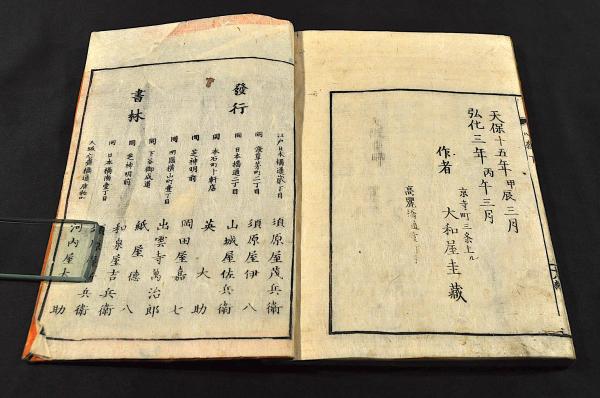 天保十五年甲辰三月
弘化三年丙午三月
京寺町三条上ル
作者 大和屋圭藏
發行
書林
江戸日本橋通壱丁目 須原屋茂兵衛
同 浅草茅町二丁目 須原屋伊八
同 日本橋通二丁目 山城屋佐兵衛
同 本石町十軒店 英大助
同 芝神明前 岡田屋嘉七
同 両國横山町壹丁目 出雲寺萬治郎
同 下谷御成道 紙屋徳八
同 芝神明前 和泉屋吉兵衛
同 日本橋南壹丁目 兵衛
大坂心斎橋通 河内屋 助